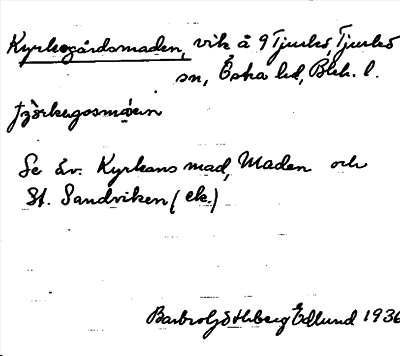 Kyrkogårdsmaden, vik å 9 Tjurkö, Tjurkö
sn, Östra hd, Blek. l.
Se äv. Kyrkans mad, Maden och
St. Sandviken (ek.)
Barbro Edlund 1936